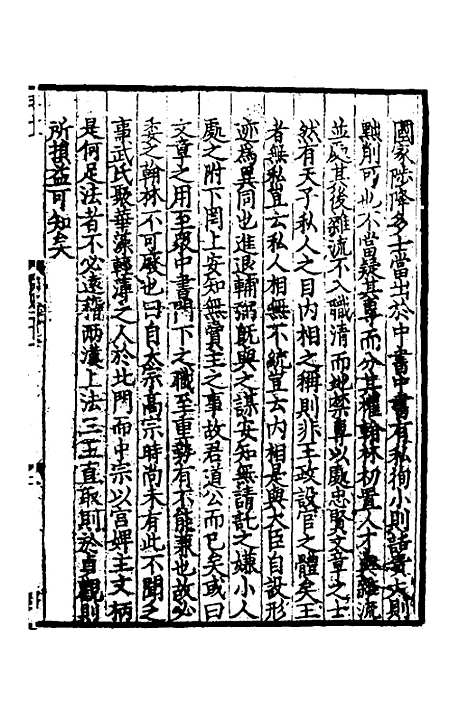 國家陟降多士當出於中書中書有私徇小則詰責大則
黜削可也不當疑其專而分其權翰林初置人才與雜流
並處其後雜流不入職清而地禁專以處忠賢文章之士
然有天子私人之目内相之稱則非王政設官之體矣王
者無私豈云私人相無不統豈云内相是與大臣自設形
迹爲異同也進退輔弼旣與之謀安知無請託之嫌小人
處之附下罔上安知無賣主之事故君道公而已矣或曰
文章之用至衆中書門下之職至重勢有不能兼也故必
委之翰林不可廢也曰自太宗高宗時尚未有此不聞乏
事武氏聚華藻輕薄之人於北門而中宗以宫婢主文柄
是何足法者不必遠稽兩漢上法三五直取則於貞觀則
所損益可知矣